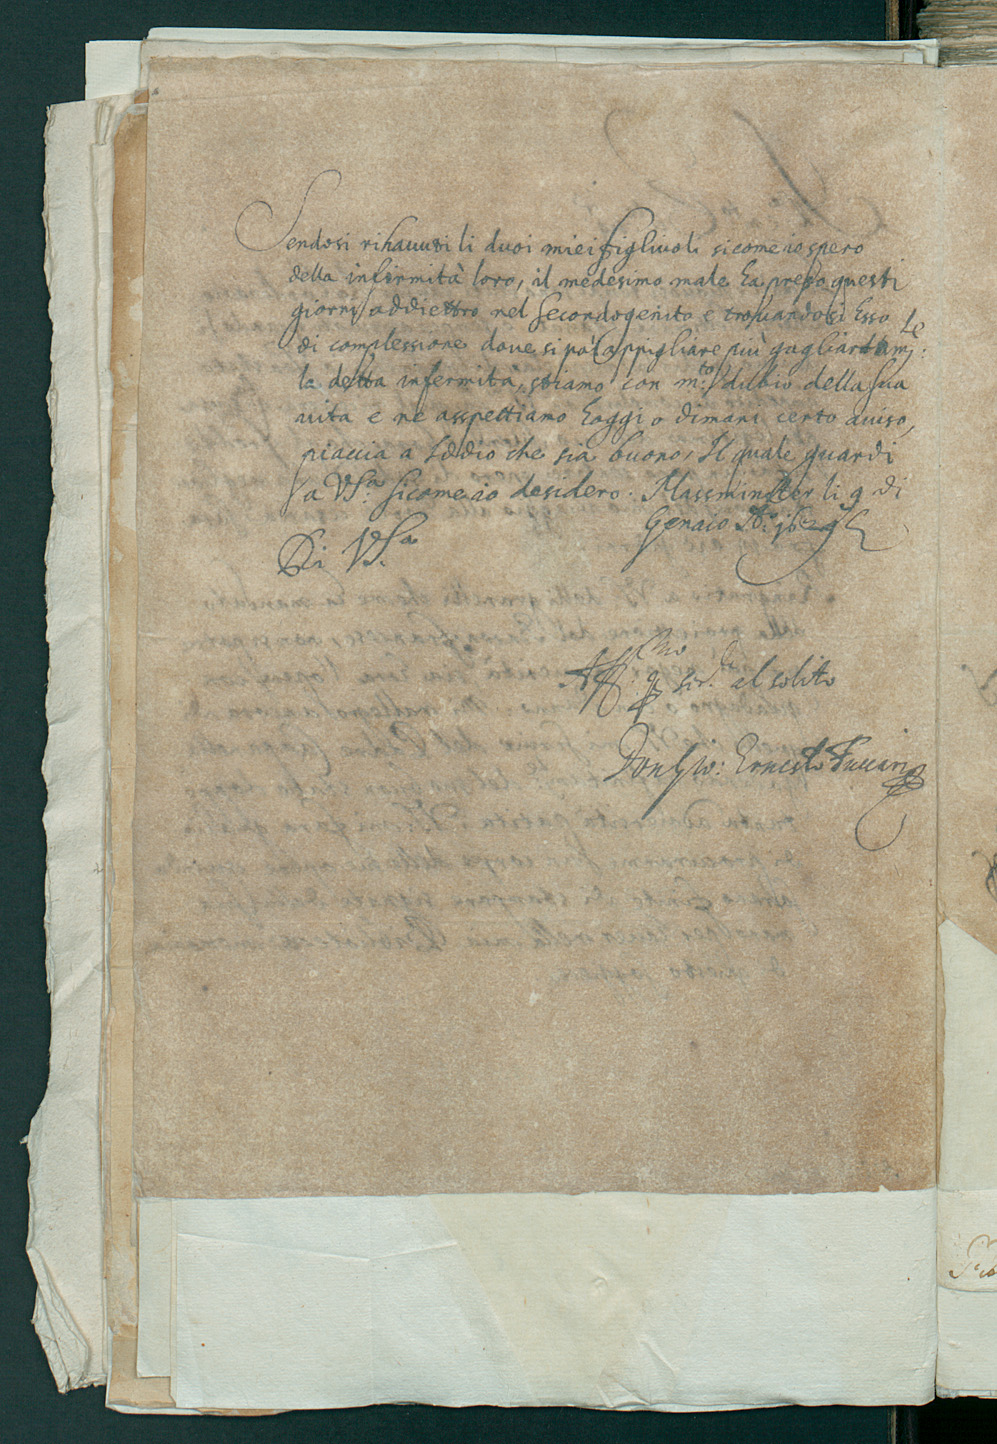 Sendosi rihauuti li duoi miei figliuoli sicome io spero
della infirmità loro, il medesimo male ha preso questi
giorni addiettro nel secondogenito e trouandosi Esso
di complessione doue si può appigliare più gagliardam:te
la detta infermità, stiamo con m:to dubio della sua
uita e ne asspettiamo hoggi o dimani certo auiso,
piaccia a Iddio che sia buono, Il quale guardi
a VS:ra sicome io desidero. Massminster li 9 di
Genaio A:o 1629
Di VS.ra
Aff:mo per ser.la al solito
Don Gio: Ernesto Fuccari